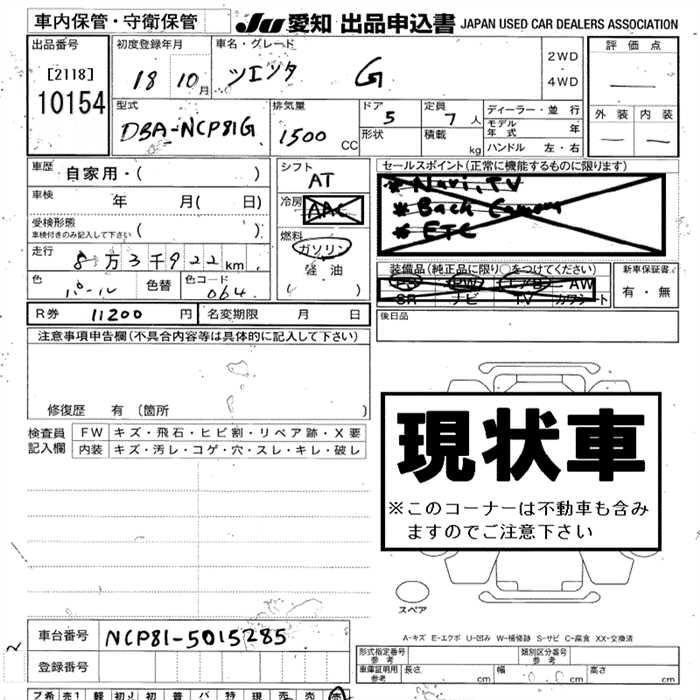 車内保管・守衛保管 JU 愛知 出品申込書 JAPAN USED CAR DEALERS ASSOCIATION
出品番号 初度登録年月 車名・グレード 評価点
[2118] 18 10月 ツエンタ G 2WD
10154 4WD
型式 排気量 ドア 定員 ディーラー・並行 外装 内装
DBA-NCP81G 1500CC 5 7人 モデル年式 年
形状 積載 kg ハンドル 左・右
車歴 自家用・( ) シフト セールスポイント(正常に機能するものに限ります)
AT
車検 年 月( 日) 冷房 * Navi, TV
AAC * Back Camera
受検形態 ( ) 燃料 * ETC
車検付きのみ記入して下さい
走行 8万3千922km ガソリン 装備品(純正品に限り○をつけてください) 新車保証書
軽油 PS PW エアB AW 有・無
色 パール 色替 色コード 064 ( ) SR ナビ TV カワシート
R券 11200円 名変期限 月 日 後日品
注意事項申告欄(不具合内容等は具体的に記入して下さい)
修復歴 有 (箇所 )
検査員 FW キズ・飛石・ヒビ割・リペア跡・X要
記入欄 内装 キズ・汚レ・コゲ・穴・スレ・キレ・破レ
現状車
※このコーナーは不動車も含み
ますのでご注意下さい
スペア
A-キズ E-エクボ U-凹み W-補修跡 S-サビ C-腐食 XX-交換済
車台番号 NCP81-5015285
登録番号
形式指定番号 参考 類別区分番号 参考
車庫証明用 参考 長さ cm 幅 cm 高さ cm